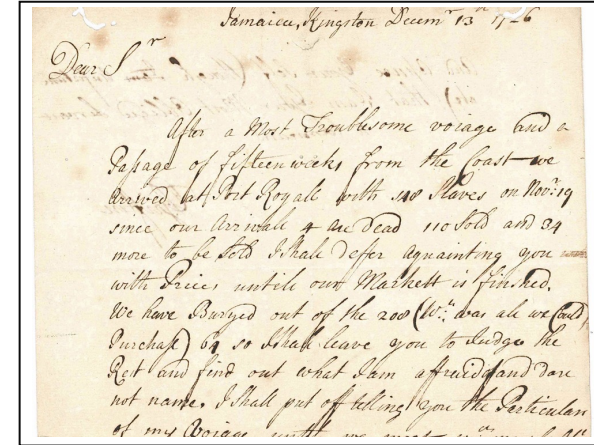 Jamaica, Kingston Decem^r 13^th 1726
Dear S^r
After a Most Troublesome voiage and a
Passage of fifteen weeks from the Coast we
arrived at Port Royall with 148 Slaves on Nov:^r 19
since our Arrivall 4 are Dead 110 Sold and 34
more to be Sold I Shall Defer aquainting you
with Prices untill our Markett is finshed.
We have Buryed out of the 208 (W^ch was all we Could
Purchase) 64 so I Shall leave you to Judge the
Rest and find out what I am affraid and dare
not name. I Shall put off telling you the Particulars
of my Voiage until we meet